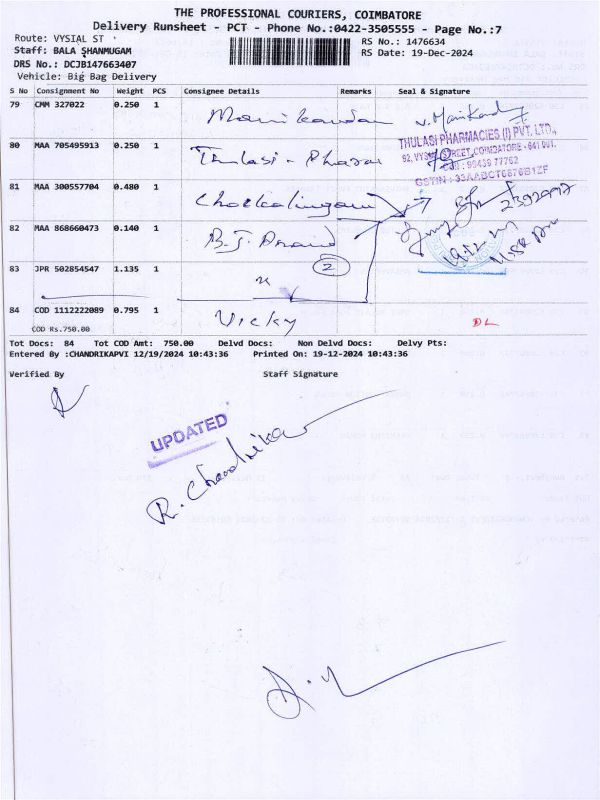 THE PROFESSIONAL COURIERS, COIMBATORE
Delivery Runsheet - PCT - Phone No.:0422-3505555 - Page No.:7
Route: VYSIAL ST
RS No.: 1476634
Staff: BALA SHANMUGAM
RS Date: 19-Dec-2024
DRS No.: DCJB147663407
Vehicle: Big Bag Delivery
S No Consignment No Weight PCS Consignee Details Remarks Seal & Signature
79 CMM 327022 0.250 1 Manikandan V. Manikand
80 MAA 705495913 0.250 1 Thulasi - Pharma
THULASI PHARMACIES (I) PVT. LTD.,
STREET, COIMBATORE - 641 001.
99439 77762
81 MAA 300557704 0.480 1 Chockalingam
82 MAA 868660473 0.140 1 B.J. Anand
2
19.12
83 JPR 502854547 1.135 1
84 COD 1112222089 0.795 1 Vicky DL
COD Rs.750.00
Tot Docs: 84 Tot COD Amt: 750.00 Delvd Docs: Non Delvd Docs: Delvy Pts:
Entered By :CHANDRIKAPVI 12/19/2024 10:43:36 Printed On: 19-12-2024 10:43:36
Verified By Staff Signature
UPDATED
R. Chandrika